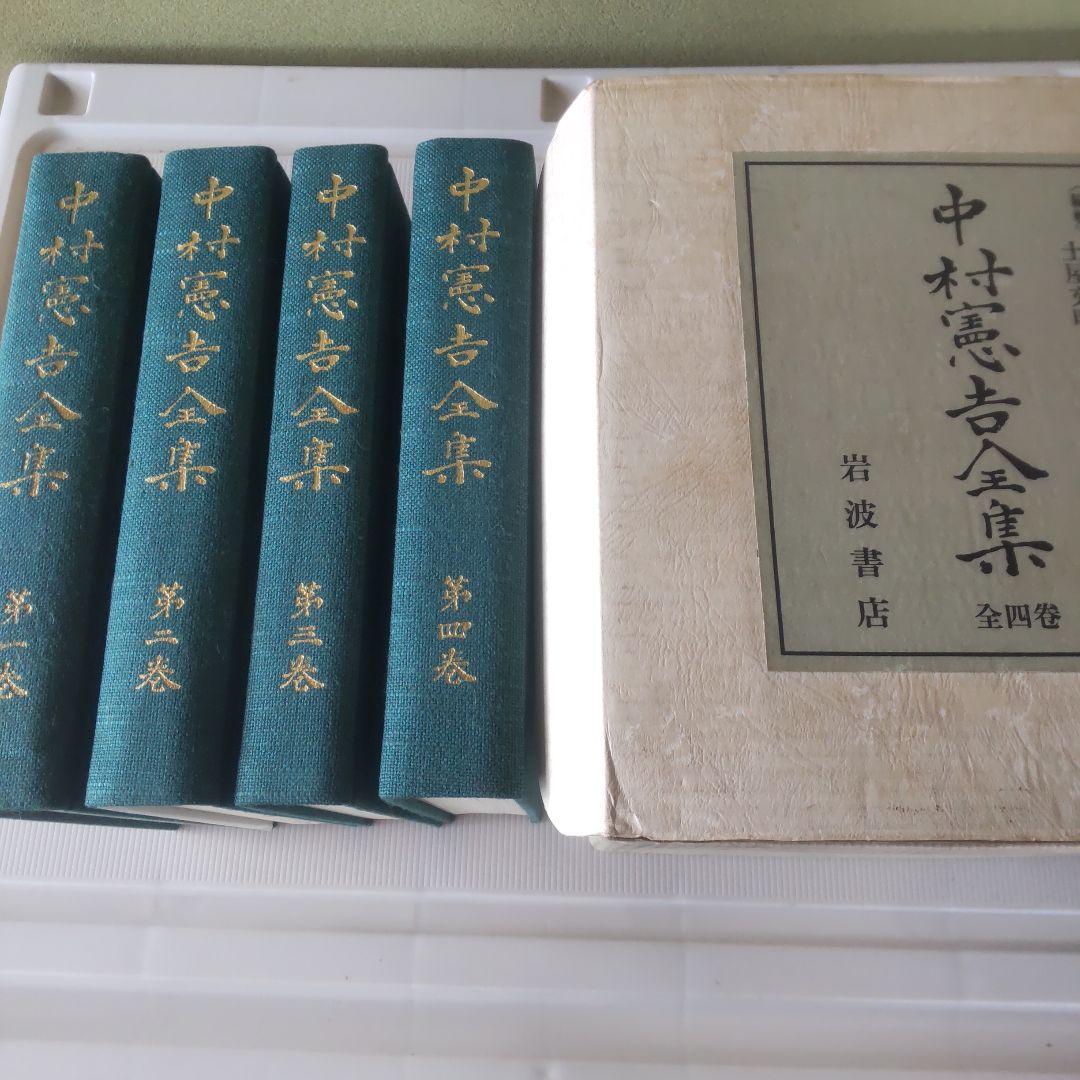 中村憲吉全集
第一巻
中村憲吉全集
第二巻
中村憲吉全集
第三巻
中村憲吉全集
第四巻
中村憲吉全集
岩波書店
全四巻